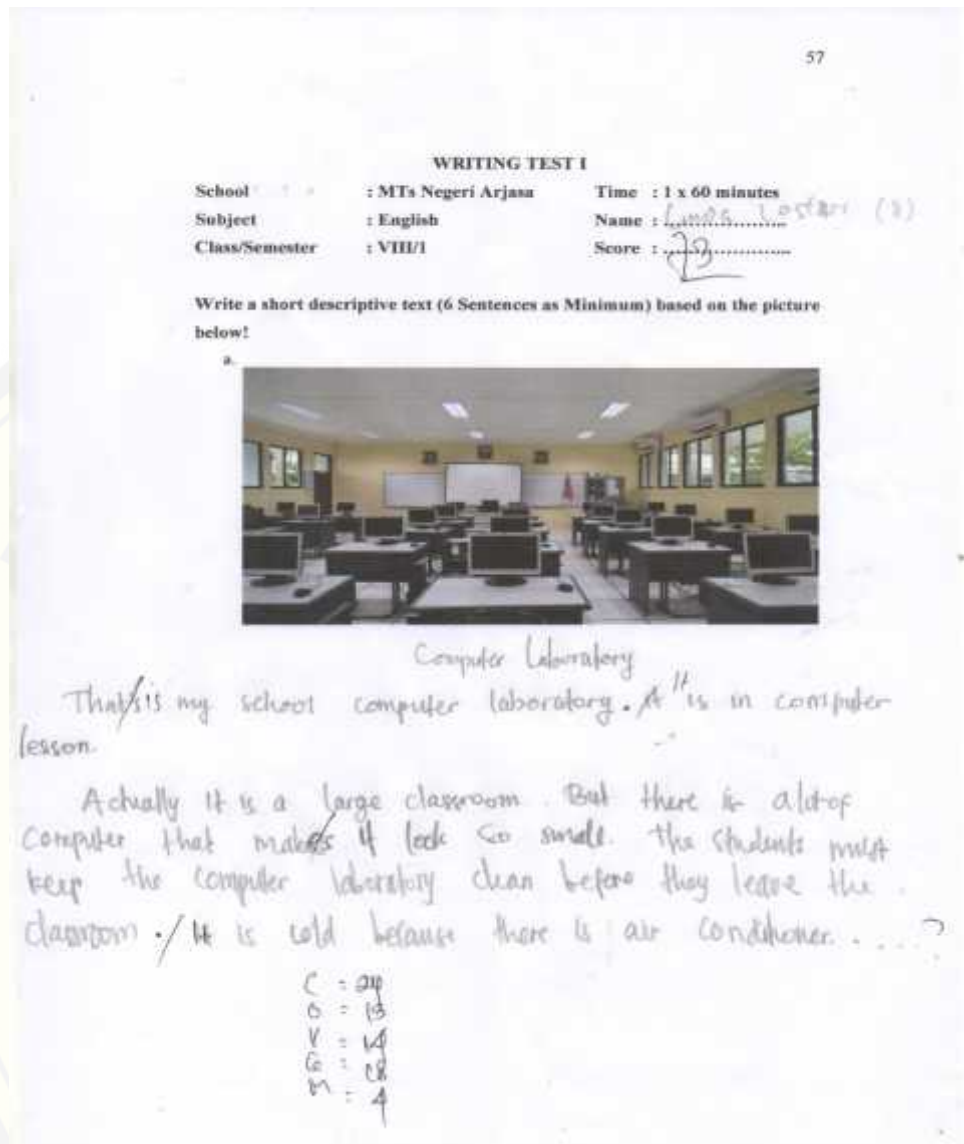 57
WRITING TEST I
School : MTs Negeri Arjasa Time : 1 x 60 minutes
Subject : English Name : Lestari (8)
Class/Semester : VIII/1 Score : 73
Write a short descriptive text (6 Sentences as Minimum) based on the picture
below!
a.
Computer Laboratory
That is my school computer laboratory. It is in computer
lesson.
Actually it is a large classroom. But there is alot of
computer that makes it look so small. the students must
keep the computer laboratory clean before they leave the
classroom. / It is cold because there is air conditioner. ...?
C = 24
O = 13
V = 14
G = 18
M = 4